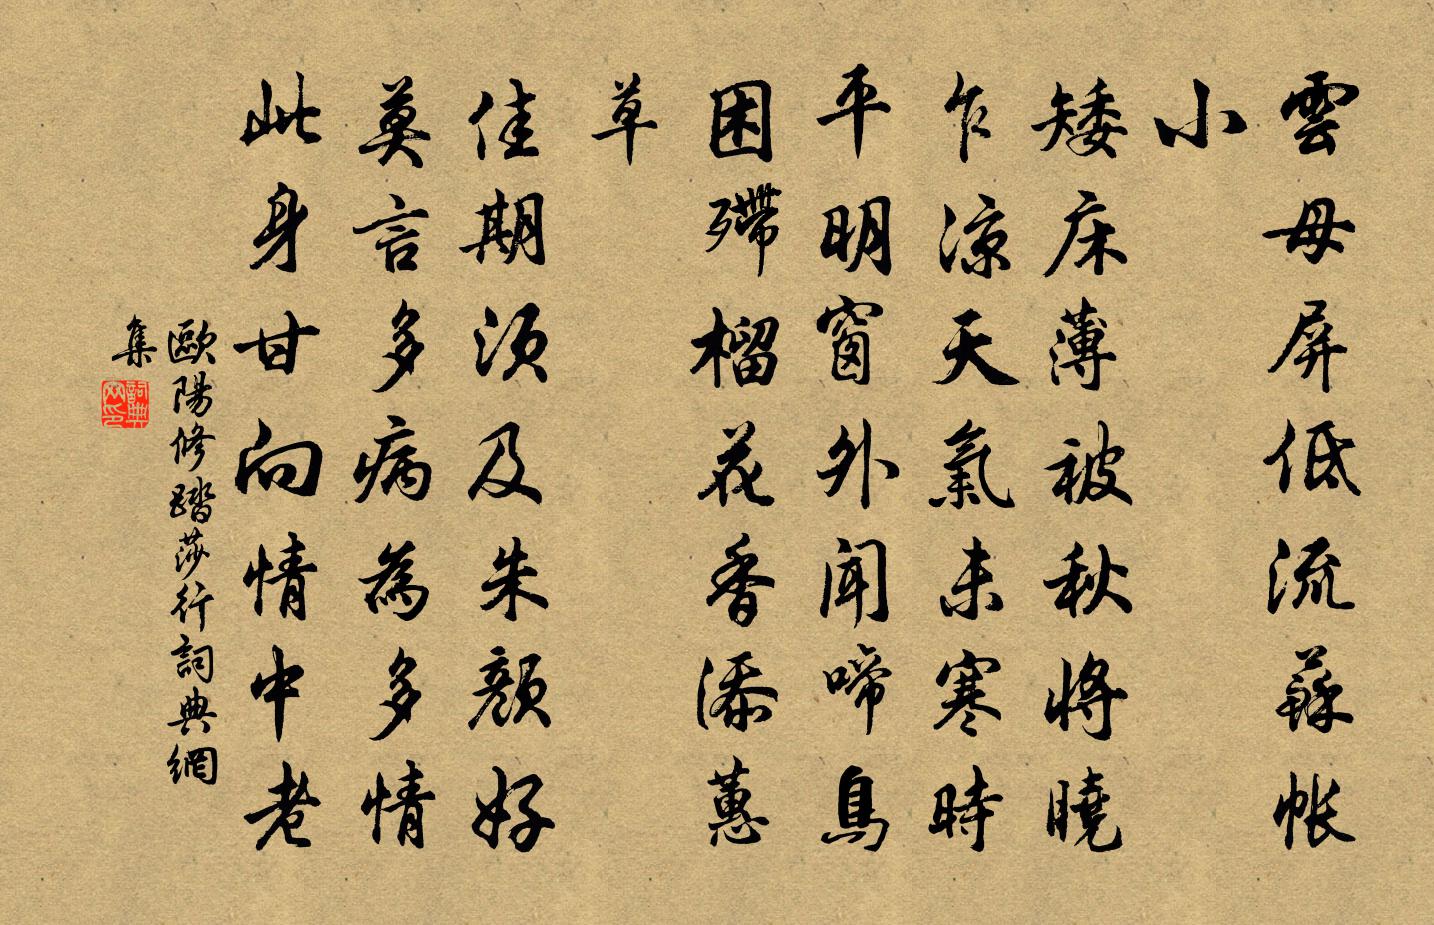 雲母屏低流蘇帳
小
矮床薄被秋將曉
乍涼天氣未寒時
平明窗外聞啼鳥
困殢榴花香添蕙
草
佳期須及朱顏好
莫言多病為多情
此身甘向情中老
歐陽修踏莎行詞典網
集
詞典
网印